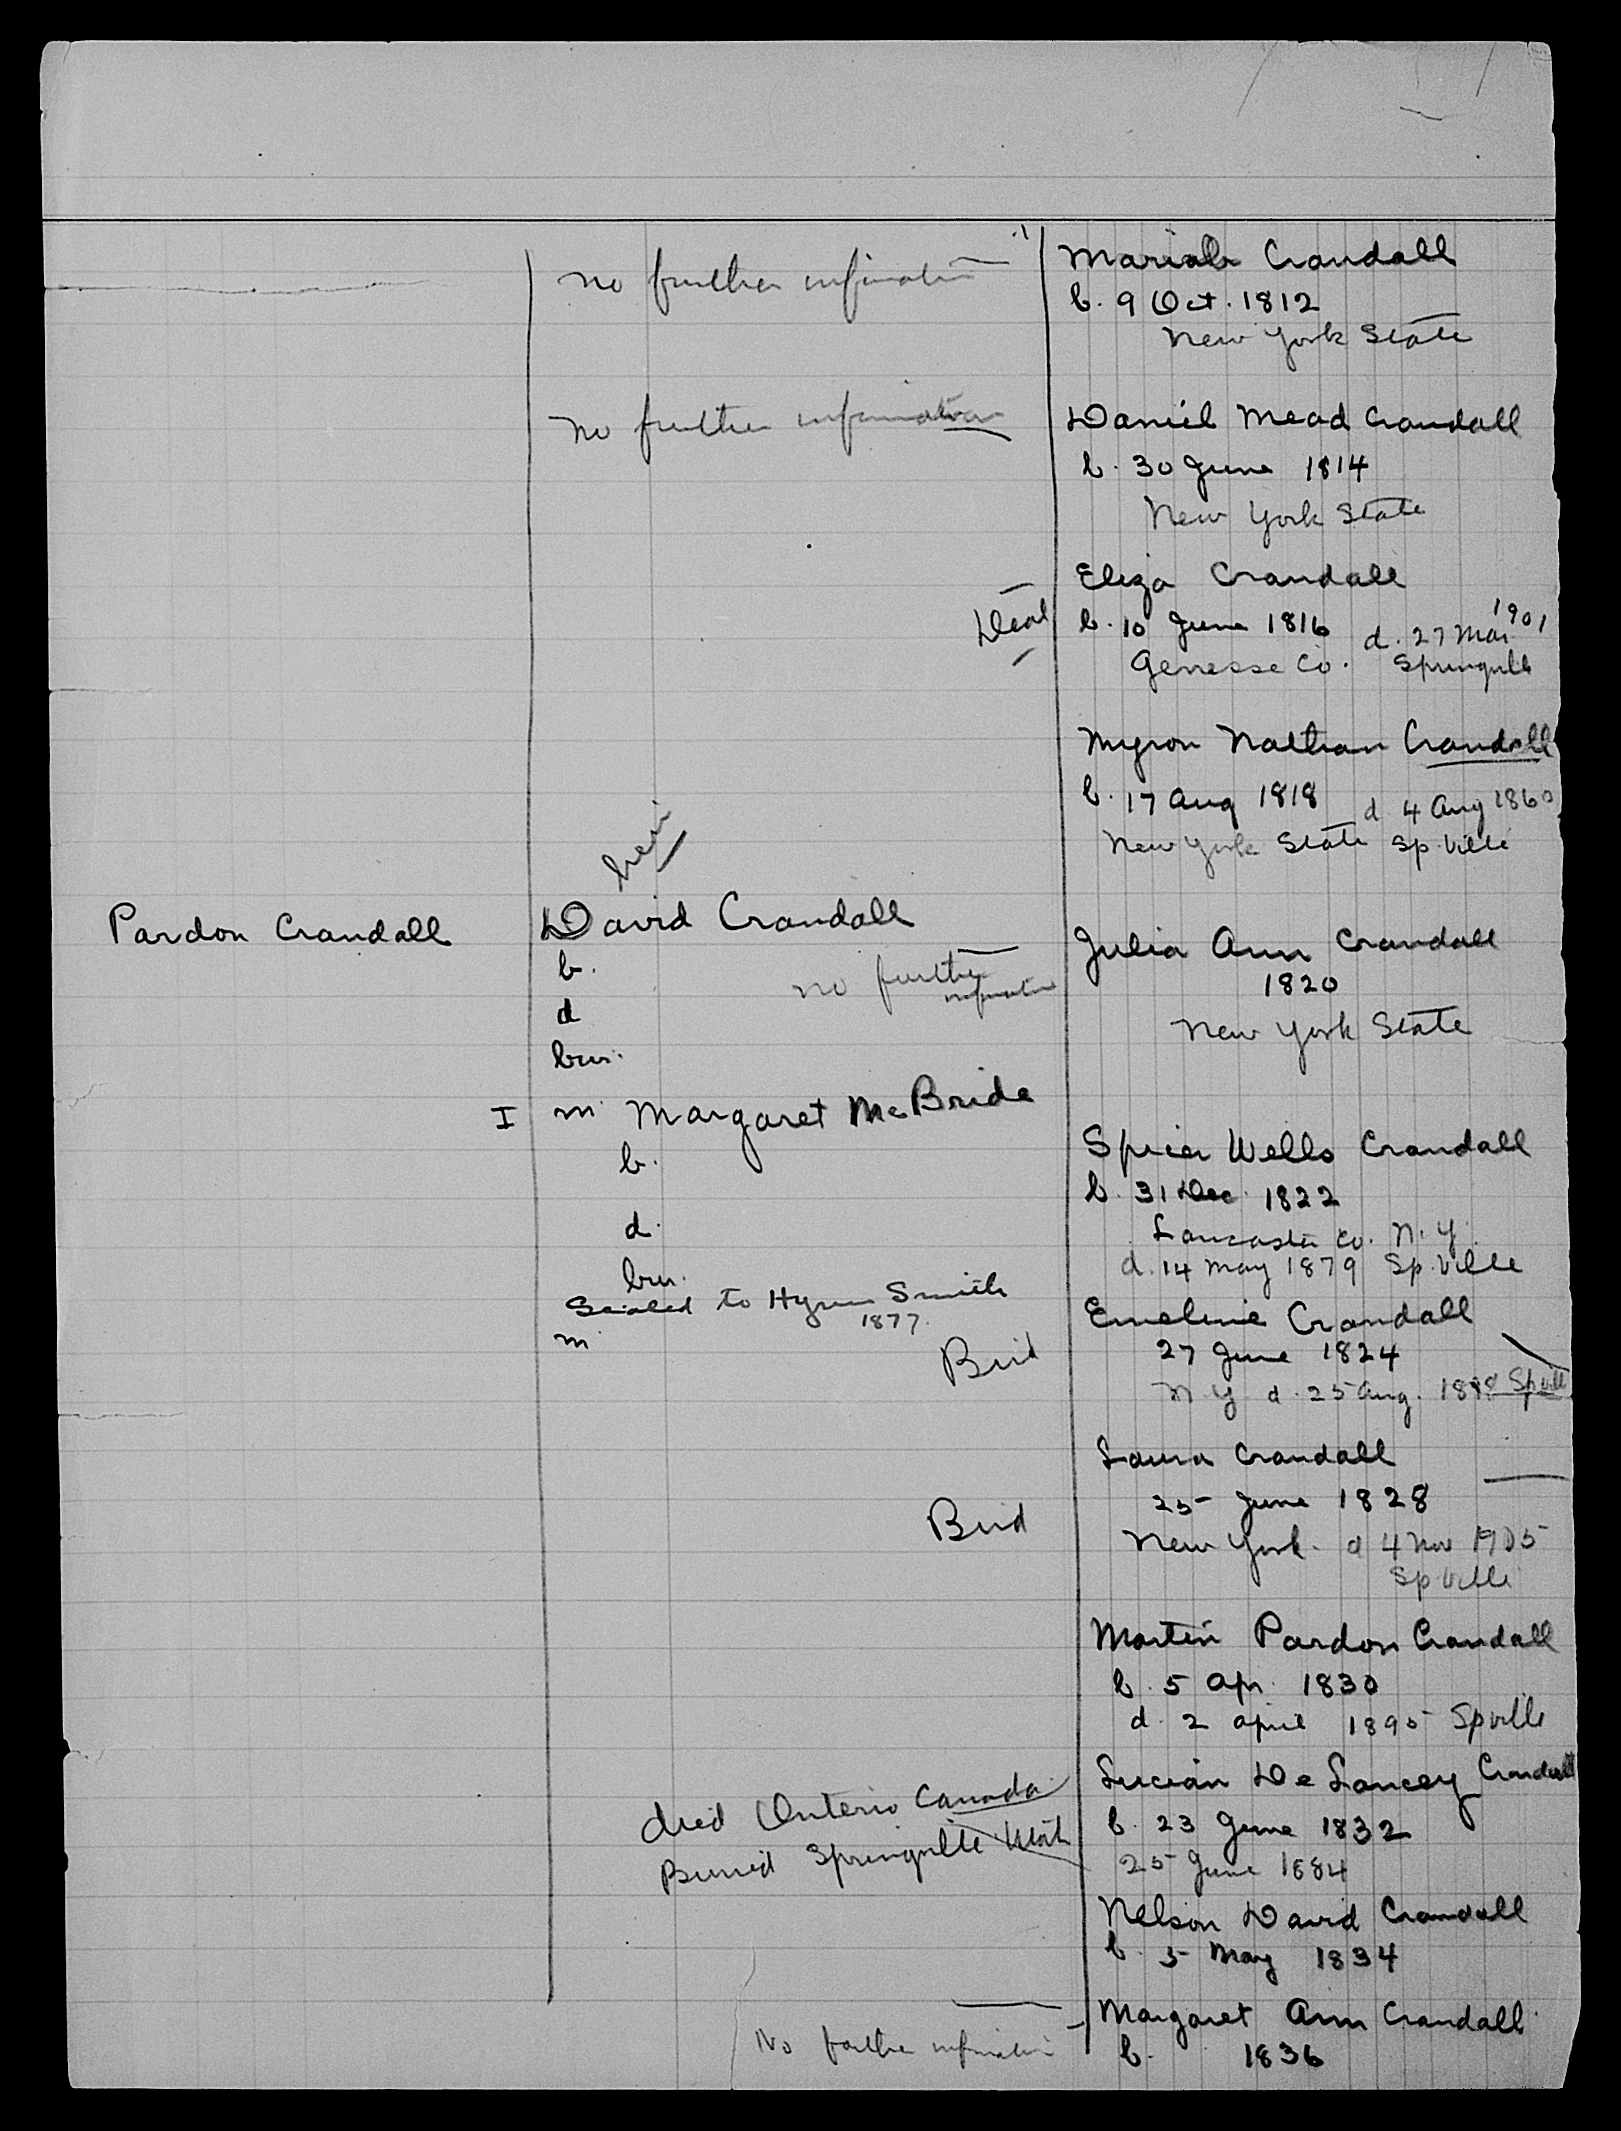 Pardon Crandall
David Crandall
b.
d
bur.
I m. Margaret McBride
b.
d.
bur.
Sealed to Hyrum Smith
1877.
m.
no further information
Mariah Crandall
b. 9 Oct. 1812
New York State
no further information
Daniel Mead Crandall
b. 30 June 1814
New York State
Eliza Crandall
b. 10 June 1816 d. 27 Mar 1901
Genesse Co. Springville
Myron Nathan Crandall
b. 17 Aug 1818 d 4 Aug 1860
New York State Sp. Ville
no further
information
Julia Ann Crandall
1820
New York State
Spicer Wells Crandall
b. 31 Dec. 1822
Lancaster Co. N.Y.
d. 14 May 1879 Sp. Ville
Bird
Emeline Crandall
27 June 1824
N.Y d. 25 Aug. Spville
Bird
Laura Crandall
25 June 1828
New York. d 4 Nov 1905
Sp Ville
Martin Pardon Crandall
b. 5 Apr. 1830
d. 2 April 1895 Spville
died Onterio Canada
Buried Springville Utah
Lucian De Lancey Crandall
b. 23 June 1832
25 June 1884
Nelson David Crandall
b. 5 May 1834
No further information
Margaret Ann Crandall
b. 1836